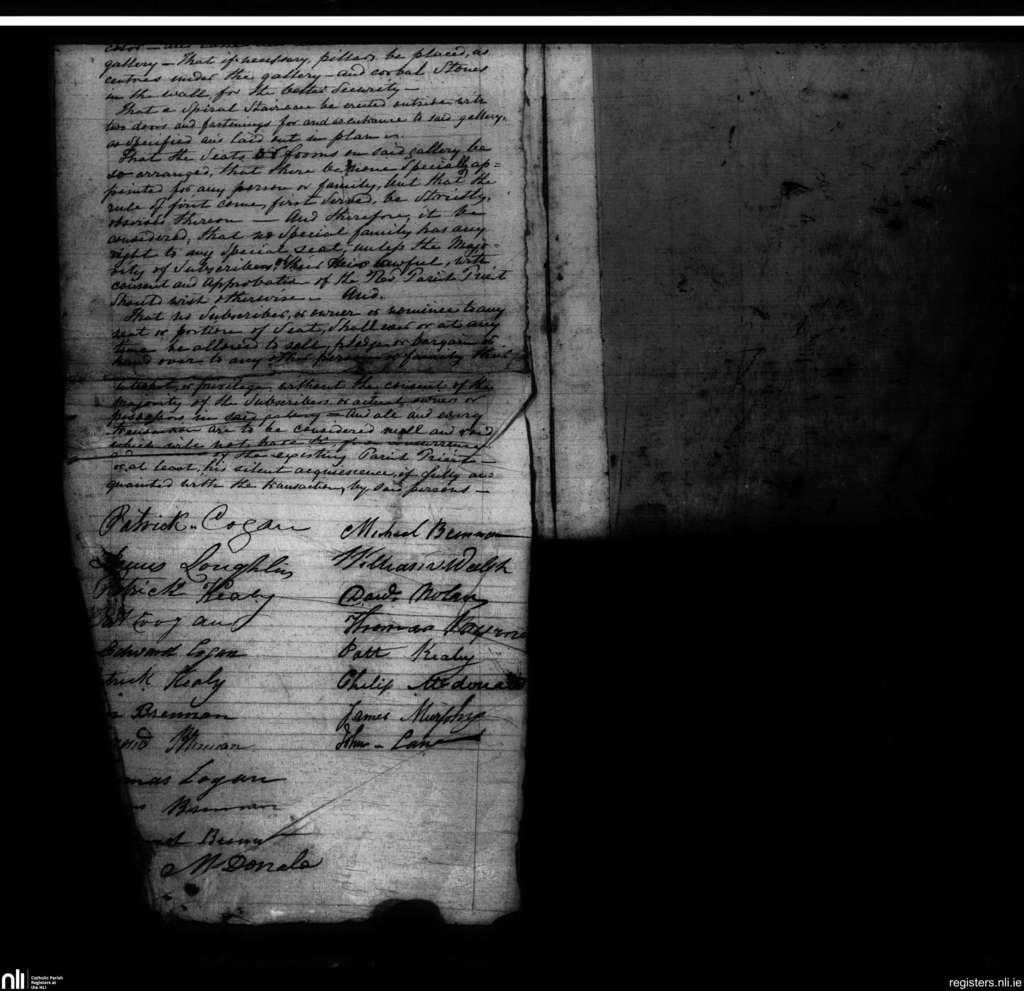 gallery – That if necessary, pillars be placed, as
centres under the gallery – and corbal Stones
in the wall for the better Security –
That a Spiral Staircase be erected outside with
two doors and fastenings for and as entrance to said gallery,
as specified and laid out in plan
That the Seats or forms on said gallery be
so arranged, that there be none Specially ap=
pointed for any person or family, but that the
rule of first come, first served, be Strictly
observed thereon – And therefore, it be
considered, that no Special family has any
right to any Special seat, unless the Majo=
rity of Subscribers, their lawful, with
consent and Approbation of the Rev. Parish Priest
Should wish otherwise – And.
That no Subscriber, or owner or nominee to any
seat or portion of Seat, Shall ever or at any
time be allowed to sell, pledge or bargain or
hand over to any other person or family that
interest, or privilege, without the consent of the
majority of the Subscribers or actual owners or
possessors in said gallery – And all and every
are to be considered null and void
which will not have the concurrence
of the existing Parish Priest –
or at least, his silent acquiescence, if fully ac=
quainted with the transaction, by said persons –
Patrick Cogan
Michael Brennan
Loughlin
William Walsh
Patrick Healy
David Nolan
Thomas
Edward Cogan
Patt Kealy
Healy
Philip McDonald
Brennan
James Murphy
John – Lane
Cogan
Brennan
McDonald
nli
Catholic Parish
Registers at
the NLI
registers.nli.ie